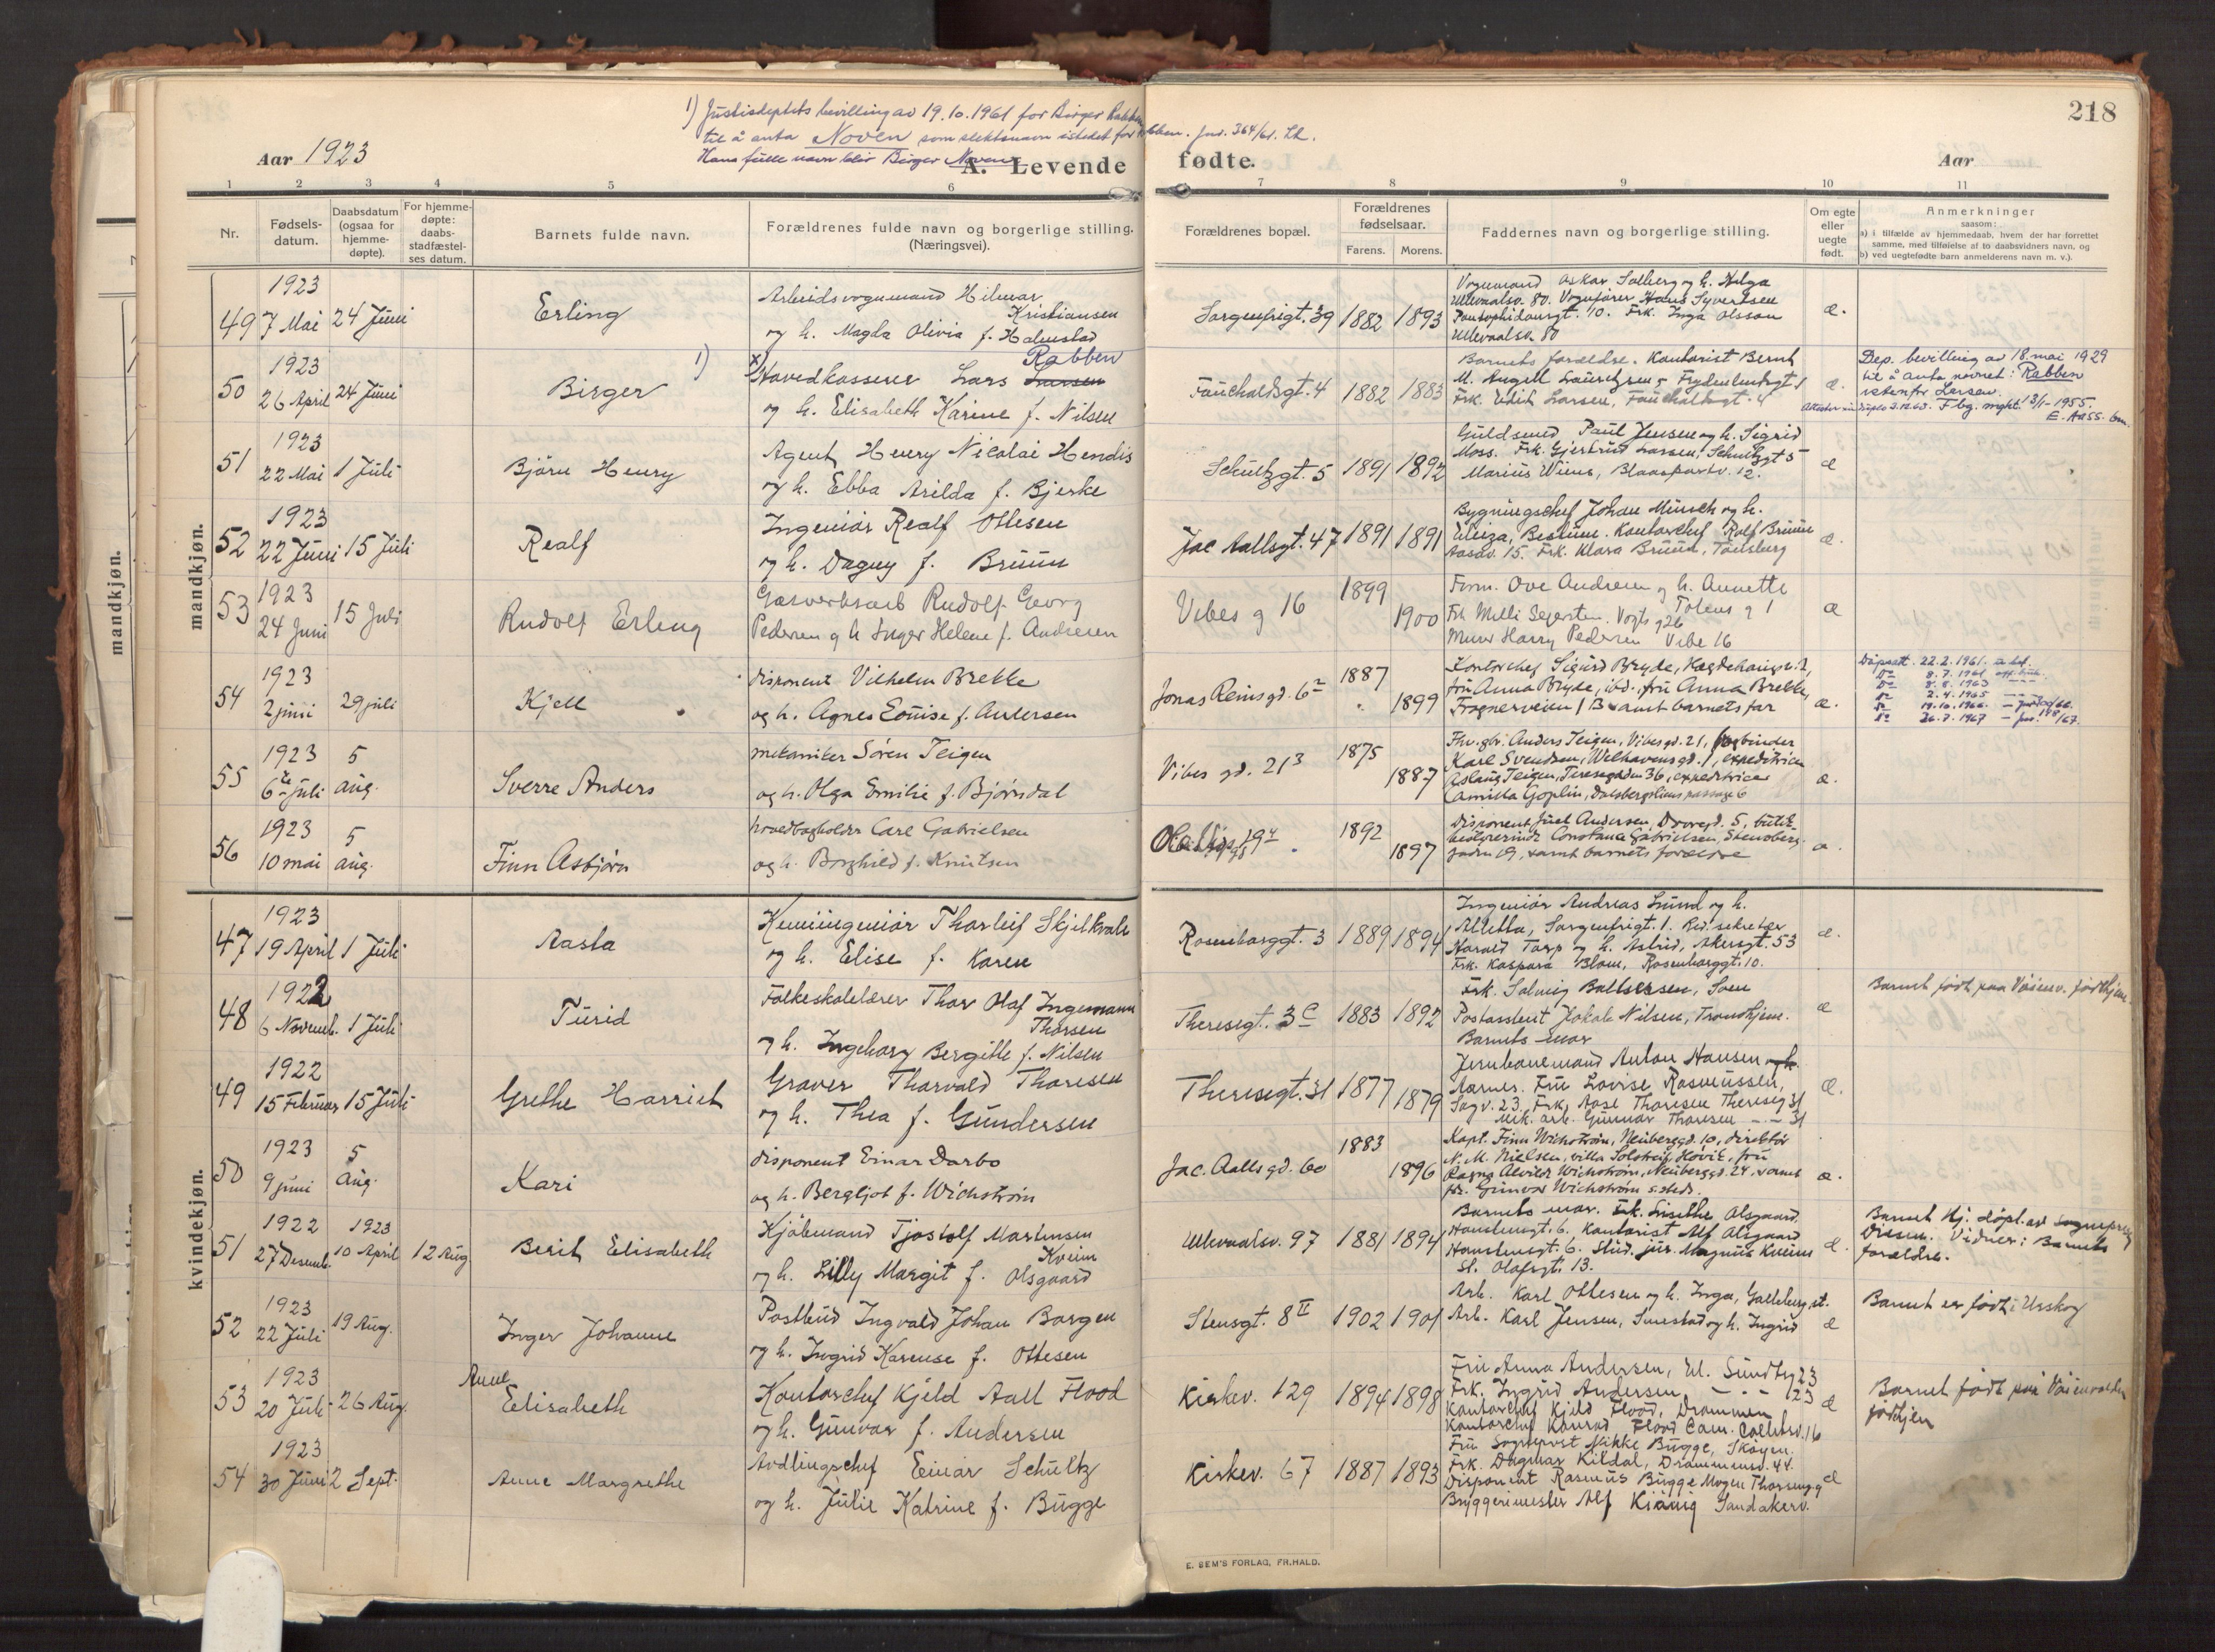 218
1) Justisdeptets bevilling av 19.10.1961 for Birger Rabben
til å anta Noven som slektsnavn istedet for Rabben. Jnr. 364/61.
Hans fulle navn blir Birger Noven
Aar 1923
A. Levende fødte.
Aar
1 2 3 4 5 6 7 8 9 10 11
Nr.
Fødsels-
datum.
Daabsdatum
(ogsaa for
hjemme-
døpte).
For hjemme-
døpte:
daabs-
stadfæstel-
ses datum.
Barnets fulde navn.
Forældrenes fulde navn og borgerlige stilling.
(Næringsvei).
Forældrenes bopæl.
Forældrenes
fødselsaar.
Farens. Morens.
Faddernes navn og borgerlige stilling.
Om egte
eller
uegte
født.
Anmerkninger
saasom:
a) i tilfælde av hjemmedaab, hvem der har forrettet
samme, med tilføielse af to daabsvidners navn, og
b) ved uegtefødte barn anmelderens navn m. v.).
mandkjøn.
mandkjøn.
1923
49 7 Mai 24 Juni
Erling
Arbeidsvognmand Hilmar
Kristiansen
og h. Magda Olivia f. Halmstad
Sorgenfrigt. 39 1882 1893
Vognmand Oskar Solberg og h. Helga
Ullevaalsv. 80. Vognfører Hans Syvertsen
10. Frk. Inga Olsson
Ullevaalsv. 80
æ.
1923
50 26 April 24 Juni
Birger
1)
x)
Rabben
Hovedkasserer Lars Larsen
og h. Elisabeth Karine f. Nilsen
Fauchaldsgt. 4 1882 1883
Barnets forældre. Kontorist Bernt
M. Angell Lauritzen, Frydenlundsgt 1
Frk. Edit Larsen, Fauchaldsgt. 4
æ.
Dep. bevilling av 18. mai 1929
til å anta navnet: Rabben
istenfor Larsen.
Fbg. mght. 13/1-1955.
E. Aass. bm.
1923
51 22 Mai 1 Juli
Bjørn Henry
Agent Henry Nicolai Hendis
og h. Ebba Arilda f. Bjerke
Schultzgt. 5 1891 1892
Guldsmed Paul Jensen og h. Sigrid
Moss. Frk. Gjertrud Larsen, Schultzgt 5
Marius Wiens, 12.
æ
1923
52 22 Juni 15 Juli
Realf
Ingeniør Realf Ottesen
og h. Dagny f. Bruun
Jac Aallsgt. 47 1891 1891
Bygningschef Johan Münsch og h.
Bestum. Kontorchef Rolf Bruun
Aasav. 15. Frk. Klara Bruun, Tønsberg
æ.
1923
53 24 Juni 15 Juli
Rudolf Erling
Gasverksarb Rudolf Georg
Pedersen og h Inger Helene f. Andresen
Vibes g 16 1899 1900
Form. Ove Andresen og h. Annette
Toftens g 1
Frk Milli Segersten. Vogts g 26
Murer Harry Pedersen Vibe 16
æ
1923
54 2 juni 29 juli
Kjell
disponent Vilhelm Brekke
og h. Agnes Louise f. Andersen
Jonas Reinsgd. 6 1887 1899
Kontorchef Sigurd Bryde, Hægdehaugsv. 2,
fru Anna Bryde, ibd., fru Anna Brekke,
Frognerveien 1 B samt barnets far
æ.
Dåpsatt. 22.2.1961.
Do 8.7.1961
Do 8.8.1963
Do 2.4.1965
Do 19.10.1966
Do 26.7.1967
1923 5
55 6te juli aug.
Sverre Anders
mekaniker Søren Teigen
og h. Olga Emilie f. Bjørndal
Vibes gd. 21 3 1875 1887
Anders Teigen, Vibesgd. 21, bogbinder
Karl Svendsen, Welhavensgd. 1, expeditrice
Aslaug Teigen, Teresegaden 36, expeditrice
Camilla Goplin, Dalsbergstiens passage 6
æ.
1923 5
56 10 mai aug.
Finn Asbjørn
hovedbogholder Carl Gabrielsen
og h. Borghild f. Knutsen
1892 1897
Disponent Juel Andersen, Dovregd. 5, butik-
bestyrerinde Constance Gabrielsen, Stensberg-
gaden 19, samt barnets forældre
æ.
kvindekjøn.
1923
47 19 April 1 Juli
Aasta
Kemiingeniør Thorleif Skjelkvale
og h. Elise f. Karen
Rosenborggt. 3 1889 1894
Ingeniør Andreas Lund og h.
Alletta, Sorgenfrigt. 1. Red. sekretær
Harald Torp og h. Astrid, Akersgt. 53
Frk. Kaspara Blom, Rosenborggt. 10.
æ.
1922
48 6 Novemb. 1 Juli
Turid
Folkeskolelærer Thor Olaf Ingemann
Thorsen
og h. Ingeborg Bergitte f. Nilsen
Theresegt. 3 C 1883 1892
Frk. Solveig Baltsersen, Soon
Postassistent Jakob Nilsen, Trondhjem.
Barnets mor
æ
Barnet født paa Vøienv. fødehjem.
1922
49 15 Februar 15 Juli
Grethe Harriet
Graver Thorvald Thoresen
og h. Thea f. Gundersen
Theresegt. 31 1877 1879
Jernbanemand Anton Hansen og h.
Aarnes. Fru Lovise Rasmussen,
Sagv. 23. Frk. Aase Thoresen Thereseg 31
Mek. arb. Gunnar Thoresen - - 31
æ.
1923 5
50 9 juni Aug.
Kari
disponent Einar Darbo
og h. Bergljot f. Wichstrøm
Jac. Aalls gd. 60 1883 1896
Kapt. Finn Wichstrøm, Neuberggd. 10, direktør
N. M. Nielsen, villa Solstreif, Høvik, fru
Ragna Alvilde Wichstrøm, Neuberggd. 24, samt
fr. Gunvor Wichstrøm s. steds.
æ.
1922 1923
51 27 Desemb. 10 April 12 Aug
Berit Elisabeth
Kjøbmand Tjostolf Martinsen
Kveim
og h. Lilly Margit f. Olsgaard
Ullevaalsv. 97 1881 1894
Barnets mor. Frk. Lisethe Olsgaard
6, Kontorist Alf Olsgaard
6. Stud. jur. Magnus Kveim
St. Olafsgt. 13.
æ.
Barnet hj. døpt av sogneprest
Vidner: Barnets
forældre.
1923
52 22 Juli 19 Aug.
Inger Johanne
Postbud Ingvald Johan Borgen
og h. Ingrid Karense f. Ottesen
Stensgt. 8 II 1902 1901
Arb. Karl Ottesen og h. Inga, Galleberg st.
Arb. Karl Jensen, Smestad og h. Ingrid
æ
Barnet er født i Urskog
1923
53 20 Juli 26 Aug.
Anne
Elisabeth
Kontorchef Kjeld Aall Flood
og h. Gunvor f. Andersen
Kirkev. 129 1894 1898
Fru Anna Andersen, Ul. Sundtsg 23
Frk. Ingrid Andersen - - - 23
Kontorchef Kjeld Flood, Drammen
Kontorchef Konrad Flood Cam. Collettsv. 16
æ
Barnet født paa Vøienvolden
fødehjem
1923
54 30 Juni 2 Sept.
Anne Margrethe
Avdlingschef Einar Schultz
og h. Julie Katrine f. Bugge
Kirkev. 67 1887 1893
Fru Sogneprest Mikke Bugge, Skøyen.
Frk. Dagmar Kildal, Drammensv. 44.
Disponent Rasmus Bugge Mogens Thorsensg
Bryggerimester Alf Kiønig Sandakerv.
æ
E. SEM'S FORLAG, FR.HALD.